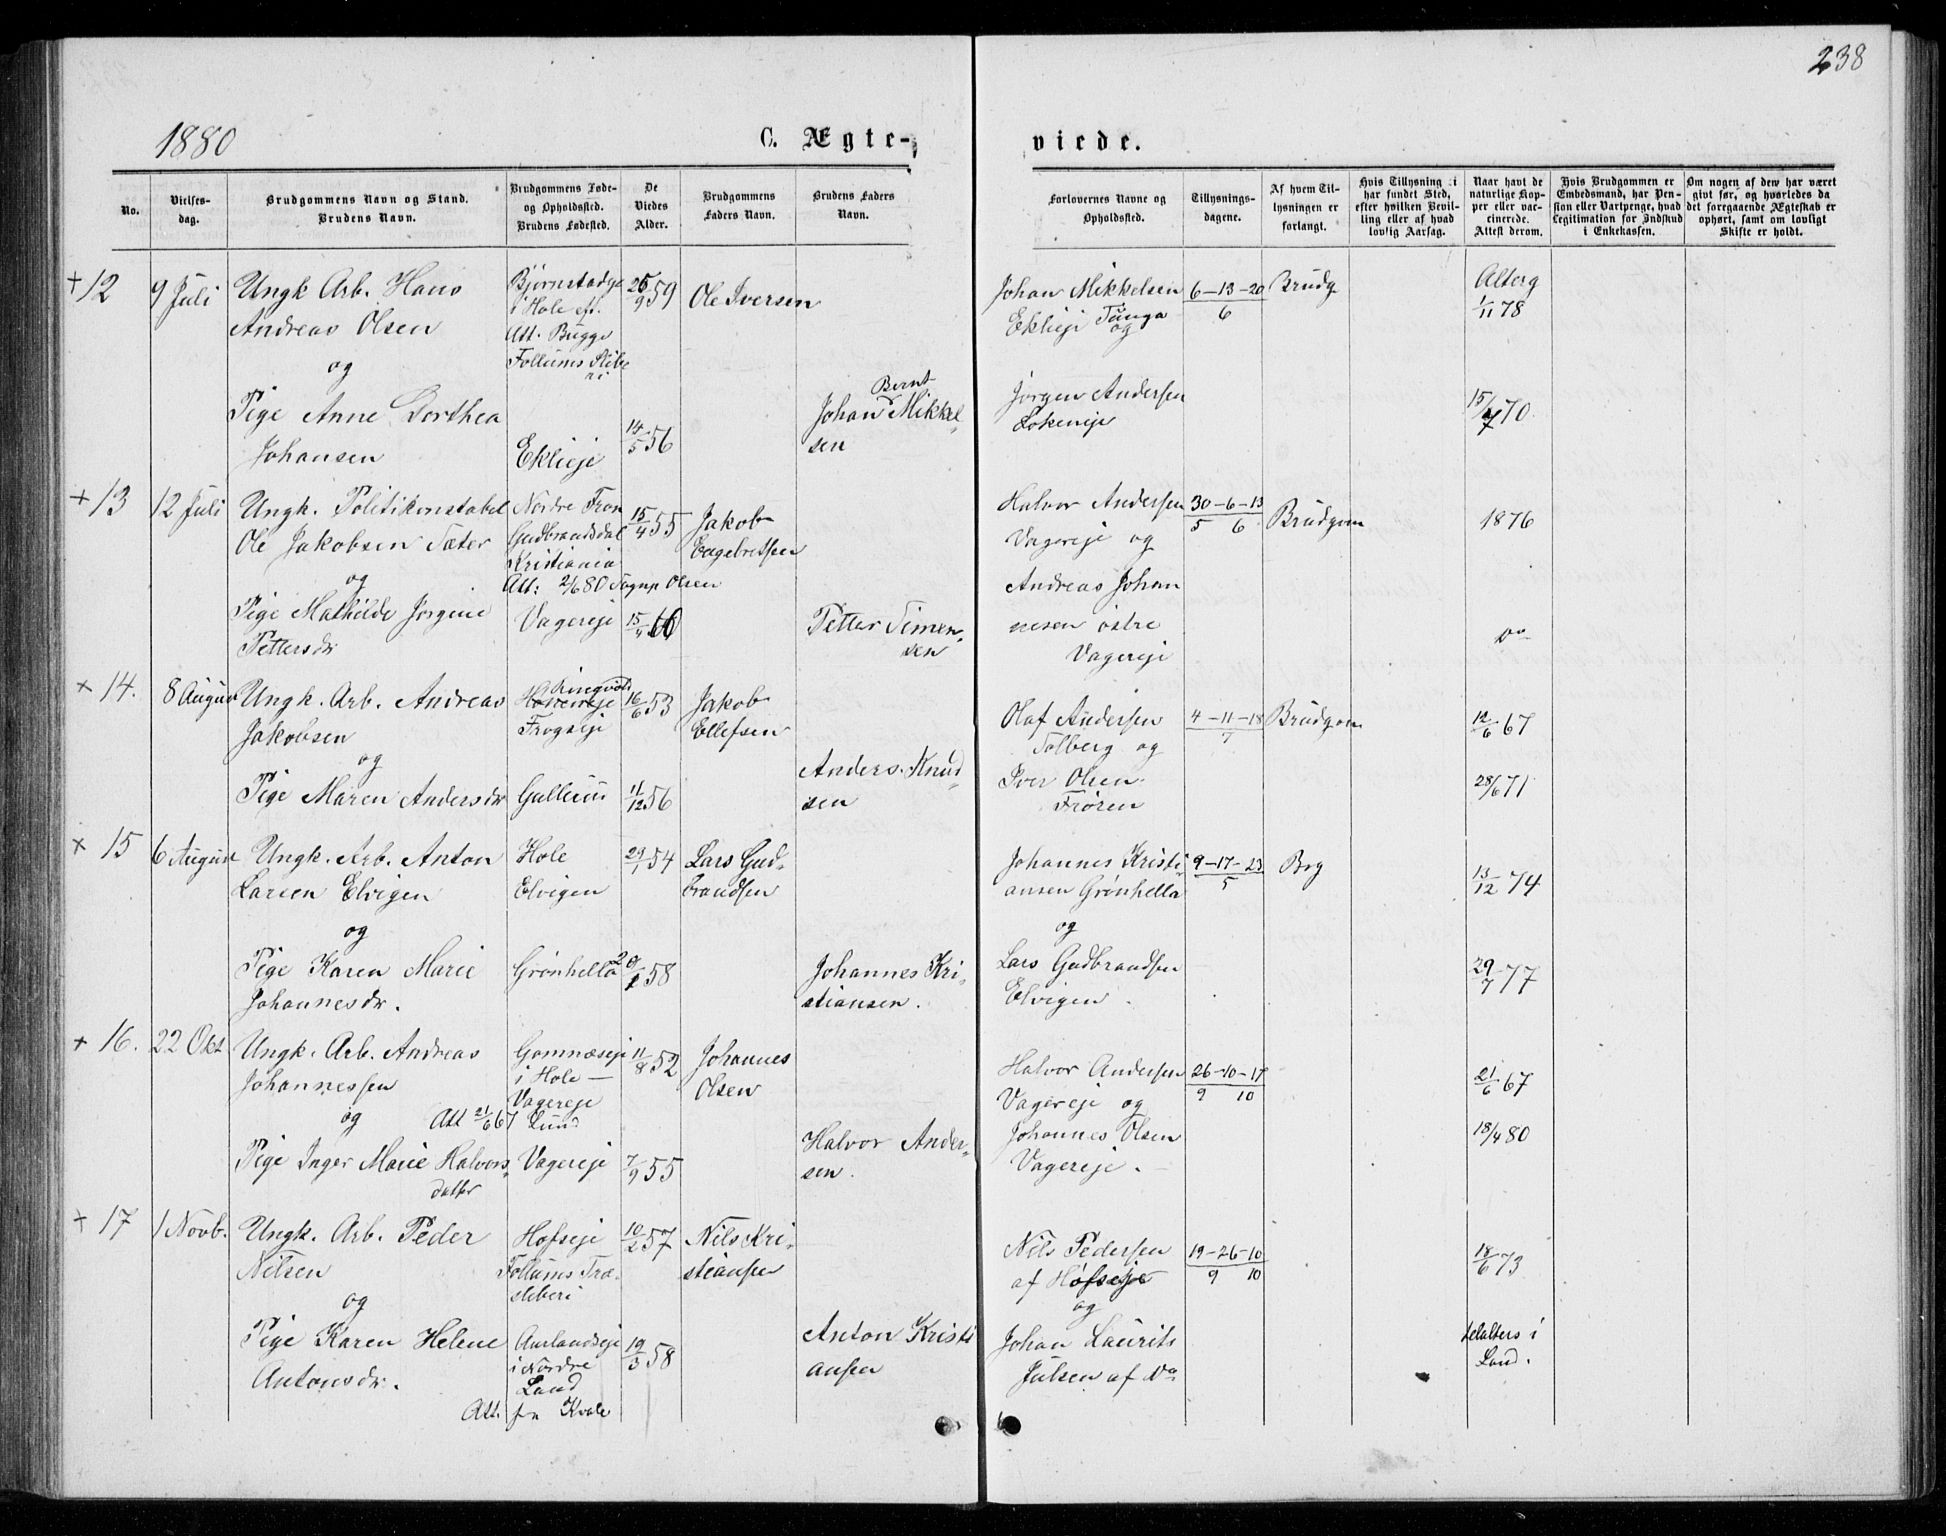 238
1880
C. Ægte-
viede.
No.
Vielses-
dag.
Brudgommens Navn og Stand.
Brudens Navn.
Brudgommens Føde-
og Opholdssted.
Brudens Fødested.
De
Viedes
Alder.
Brudgommens
Faders Navn.
Brudens Faders
Navn.
Forlovernes Navne og
Opholdssted.
Tillysnings-
dagene.
Af hvem Til-
lysningen er
forlangt.
Hvis Tillysning ei
har fundet Sted,
efter hvilken Bevil-
ling eller af hvad
lovlig Aarsag.
Naar havt de
naturlige Kop-
per eller vac-
cinerede.
Attest derom.
Hvis Brudgommen er
Embedsmand, har Pen-
sion eller Vartpenge, hvad
Legitimation for Indskud
i Enkekassen.
Om nogen af dem har været
givt før, og hvorledes da
det foregaaende Ægteskab er
ophørt, samt om lovligt
Skifte er holdt.
+ 12 9 Juli Ungk Arb. Hans
Andreas Olsen
og
Pige Anne Dorthea
Johansen
i Hole eft.
Att. Bugge
Follums
Eklieje
59
14/5 56
Ole Iversen
Johan Bernt Mikkel-
sen
Johan Mikkelsen
Eklieje
og
Jørgen Andersen
Lokeneje
6-13-20
6
Brudg
1/11 78
15/7 70.
+ 13 12 Juli Ungk. Politikonstabel
Ole Jakobsen Sæter
og
Pige Mathilde Jørgine
Pettersdr
Nordre Fron
Gudbrandsdal
Kristiania
Att: 2/6 80 Sognp Olsen
Vagereje
15/4 55
15/4 60
Jakob
Engebretsen
Petter Simen-
sen
Halvor Andersen
Vagereje og
Andreas Johan
nesen østre
Vagereje
30-6-13
5 6
Brudgom
1876
Do
+ 14. 8 August Ungk. Arb. Andreas
Jakobsen
og
Pige Maren Andersdr
Ringvold
Frogseje
Gullerud
16/6 53
11/12 56
Jakob
Ellefsen
Anders Knud-
sen
Olaf Andersen
Solberg og
Iver Olsen
Frøren
4-11-18
7
Brudgom
12/6 67
28/6 71
+ 15 6 August Ungk. Arb. Anton
Larsen Elvigen
og
Pige Karen Marie
Johannesdr.
Hole
Elvigen
Grønhella
29/1 54
58
Lars Gud-
brandsen
Johannes Kri-
stiansen.
Johannes Kristi-
ansen Grønhella
og
Lars Gudbrandsen
Elvigen.
9-17-23
5
Brg
13/12 74
29/7 77
+ 16. 22 Okt Ungk. Arb. Andreas
Johannessen
og Att 21/6 67 Lund
Pige Inger Marie Halvors-
datter
Gomnæseje
i Hole —
Vagereje
Vagereje
11/8 52
7/9 55
Johannes
Olsen
Halvor Ander-
sen.
Halvor Andersen
Vagereje og
Johannes Olsen
Vagereje.
26-10-17
9 10
21/6 67
18/4 80
+ 17 1 Novb. Ungk. Arb. Peder
Nilsen
og
Pige Karen Helene
Antonsdr.
Hofseje
Follums Træ-
sliberi
Aurlandseje
i Nordre
Land
Att. fra Kvale
10/2 57
19/3 58
Nils Kri-
stiansen
Anton Kristi
ansen
Nils Pedersen
af Hofseje
og
Johan Laurits
Julsen af Do
19-26-10
9 10
18/6 73
Land.